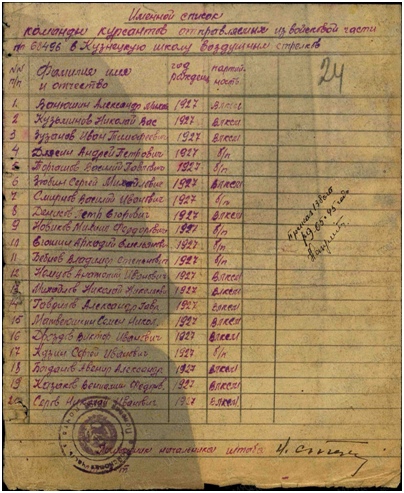 Именной список
команды курсантов отправляемых из войсковой части
пп 65496 в Кузнецкую школу воздушных стрелков
24
NN п/п Фамилия имя и отчество год рожден. партийность
1. Александр 1927 Влксм
2 Кузьминов Николай Вас 1927 Влксм
3 Иван Тимофеевич 1927 Влксм
4 Андрей Петрович 1927 б/п
5 Василий Павлович 1927 б/п
6 Сергей Михайлович 1927 Влксм
7 Смирнов Василий Иванович 1927 б/п
8 Денисов Петр Егорович 1927 Влксм
9 Новиков Михаил Федорович 1927 б/п
10 Аркадий 1927 б/п
11 Владимир 1927 б/п
12 Анатолий Иванович 1927 Влксм
13 Михайлов Николай Николаевич 1927 Влксм
14 Гаврилов Александр Гавр 1927 Влксм
15 Семен Никол. 1927 Влксм
16 Дроздов Виктор Иванович 1927 Влксм
17 Сергей Иванович 1927 б/п
18 Богданов Александр. 1927 Влксм
19 Казаков Вениамин Федров. 1927 Влксм
20 Серов Николай Иванович 1927 Влксм
29.03.45 года
начальника штаба